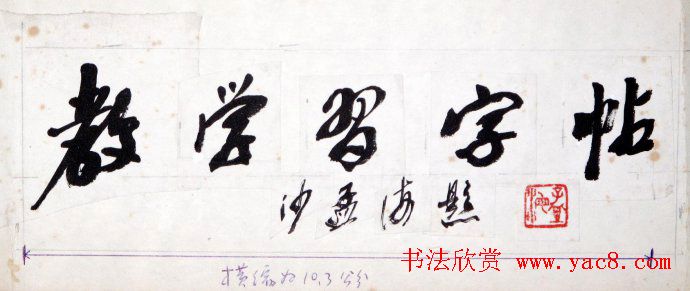 教学习字帖
沙孟海题
横缩为10.3公分
书法欣赏 www.yac8.com